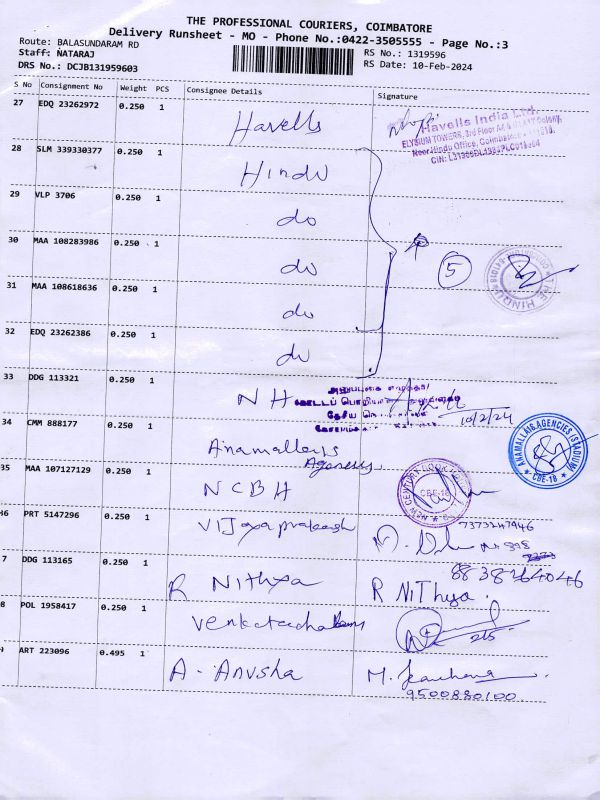 THE PROFESSIONAL COURIERS, COIMBATORE
Delivery Runsheet - MO - Phone No.:0422-3505555 - Page No.:3
Route: BALASUNDARAM RD
RS No.: 1319596
Staff: NATARAJ
RS Date: 10-Feb-2024
DRS No.: DCJB131959603
S No Consignment No Weight PCS Consignee Details Signature
27 EDQ 23262972 0.250 1 Havells
Havells India Ltd.
ELYSIUM TOWERS, 3rd Floor
Near Hindu Office, Coimbatore
28 SLM 339330377 0.250 1 Hindu
29 VLP 3706 0.250 1 do
30 MAA 108283986 0.250 1 do
5
THE HINDU
31 MAA 108618636 0.250 1 do
32 EDQ 23262386 0.250 1 do
33 DDG 113321 0.250 1 NH
10/2/24
34 CMM 888177 0.250 1 Anamallais
Agencies
ANAMALLAIS AGENCIES
CBE-18
35 MAA 107127129 0.250 1 NCBH
NEW CENTURY BOOK
CBE-18
36 PRT 5147296 0.250 1 Vijayaprakash
7373247946
7 DDG 113165 0.250 1 R Nithya R NiThya.
8838264046
8 POL 1958417 0.250 1 Venkatachalam
ART 223096 0.495 1 A. Anusha
9500880100